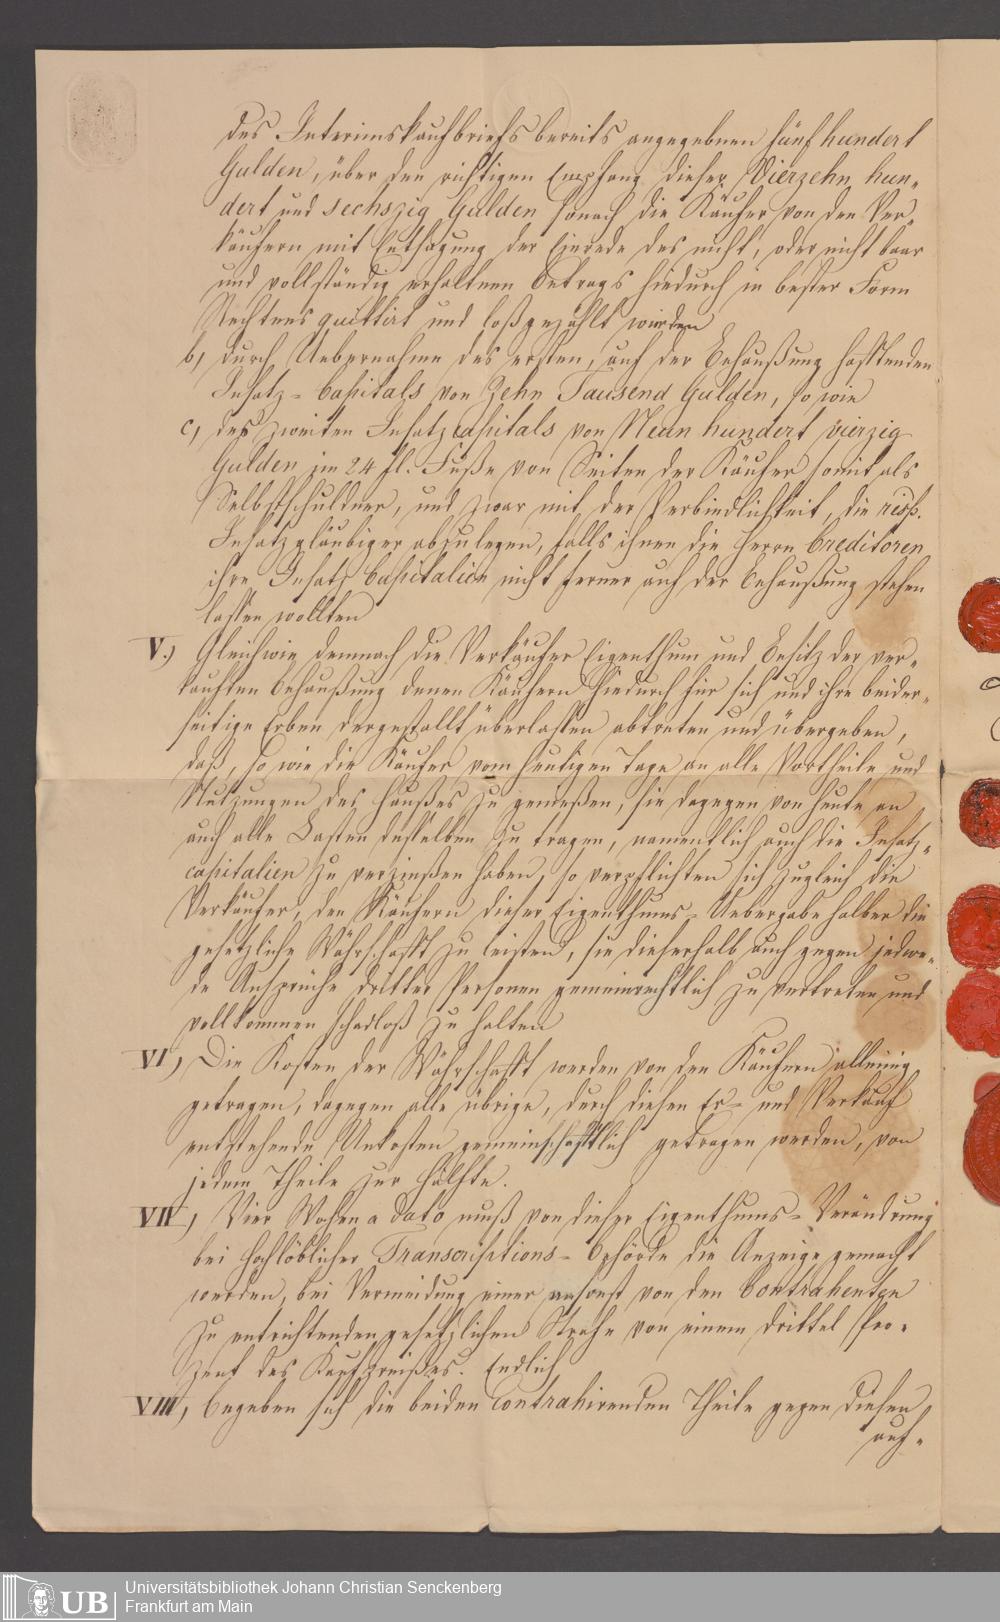 des Interimskaufbriefs bereits angegebenen fünfhundert
Gulden, über den richtigen Empfang dieser Vierzehn hun-
dert und sechszig Gulden sonach die Käufer von den Ver-
käufern mit Entsagung der Einrede des nicht, oder nicht baar
und vollständig erhaltenen Betrags hiedurch in bester Form
Rechtens quittirt und loßgezählt werden
b, durch Uebernahme des ersten, auf der Behaußung hafftenden
Insatz-Capitals von Zehn Tausend Gulden, so wie
c, des zweiten Insatzcapitals von Neun hundert vierzig
Gulden im 24 fl. Fuße von Seiten der Käufer somit als
Selbstschuldner, und zwar mit der Verbindlichkeit, die resp.
Insatzgläubiger abzulegen, falls ihnen die Herrn Creditoren
ihre Insatz Capitalien nicht ferner auf der Behaußung stehen
lassen wollten
V.) Gleichwie demnach die Verkäufer Eigenthum und Besitz der ver-
kauften Behaußung denen Käufern hiedurch für sich und ihre beider-
seitige Erben dergestallt überlassen abtreten und übergeben,
daß, so wie die Käufer vom heutigen Tage an alle Vortheile und
Nutzungen des Haußes zu genießen, sie dagegen von heute an
auch alle Lasten desselben zu tragen, namentlich auch die Insatz-
capitalien zu verzinßen haben, so verpflichten sich zugleich die
Verkäufer, den Käufern dieser Eigenthums-Uebergabe halber die
gesetzliche Währschafft zu leisten, sie dieserhalb auch gegen jedwe-
de Ansprüche dritter Personen gemeinrechtlich zu vertreten und
vollkommen schadloß zu halten
VI, Die Kosten der Währschafft werden von den Käufern alleinig
getragen, dagegen alle übrige, durch diesen Er- und Verkauf
entstehende Unkosten gemeinschafftlich getragen werden, von
jedem Theile zur Hälfte.
VII, Vier Wochen a dato muß von dieser Eigenthums-Verändrung
bei hochlöblicher Transcriptions-Behörde die Anzeige gemacht
werden, bei Vermeidung einer ansonst von den Contrahenten
zu entrichtenden gesetzlichen Strafe von einem drittel Pro-
zent des Kaufpreißes. Endlich
VIII, begeben sich die beiden Contrahirenden Theile gegen diesen
auf-
UB
Universitätsbibliothek Johann Christian Senckenberg
Frankfurt am Main